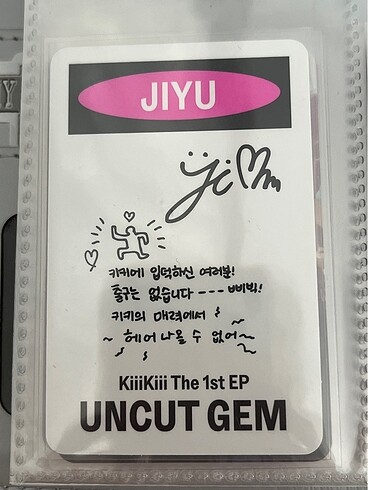 JIYU
키키에 입덕하신 여러분!
출구는 없습니다 --- 삐빅!
키키의 매력에서
~ 헤어 나올 수 없어~
KiiiKiii The 1st EP
UNCUT GEM